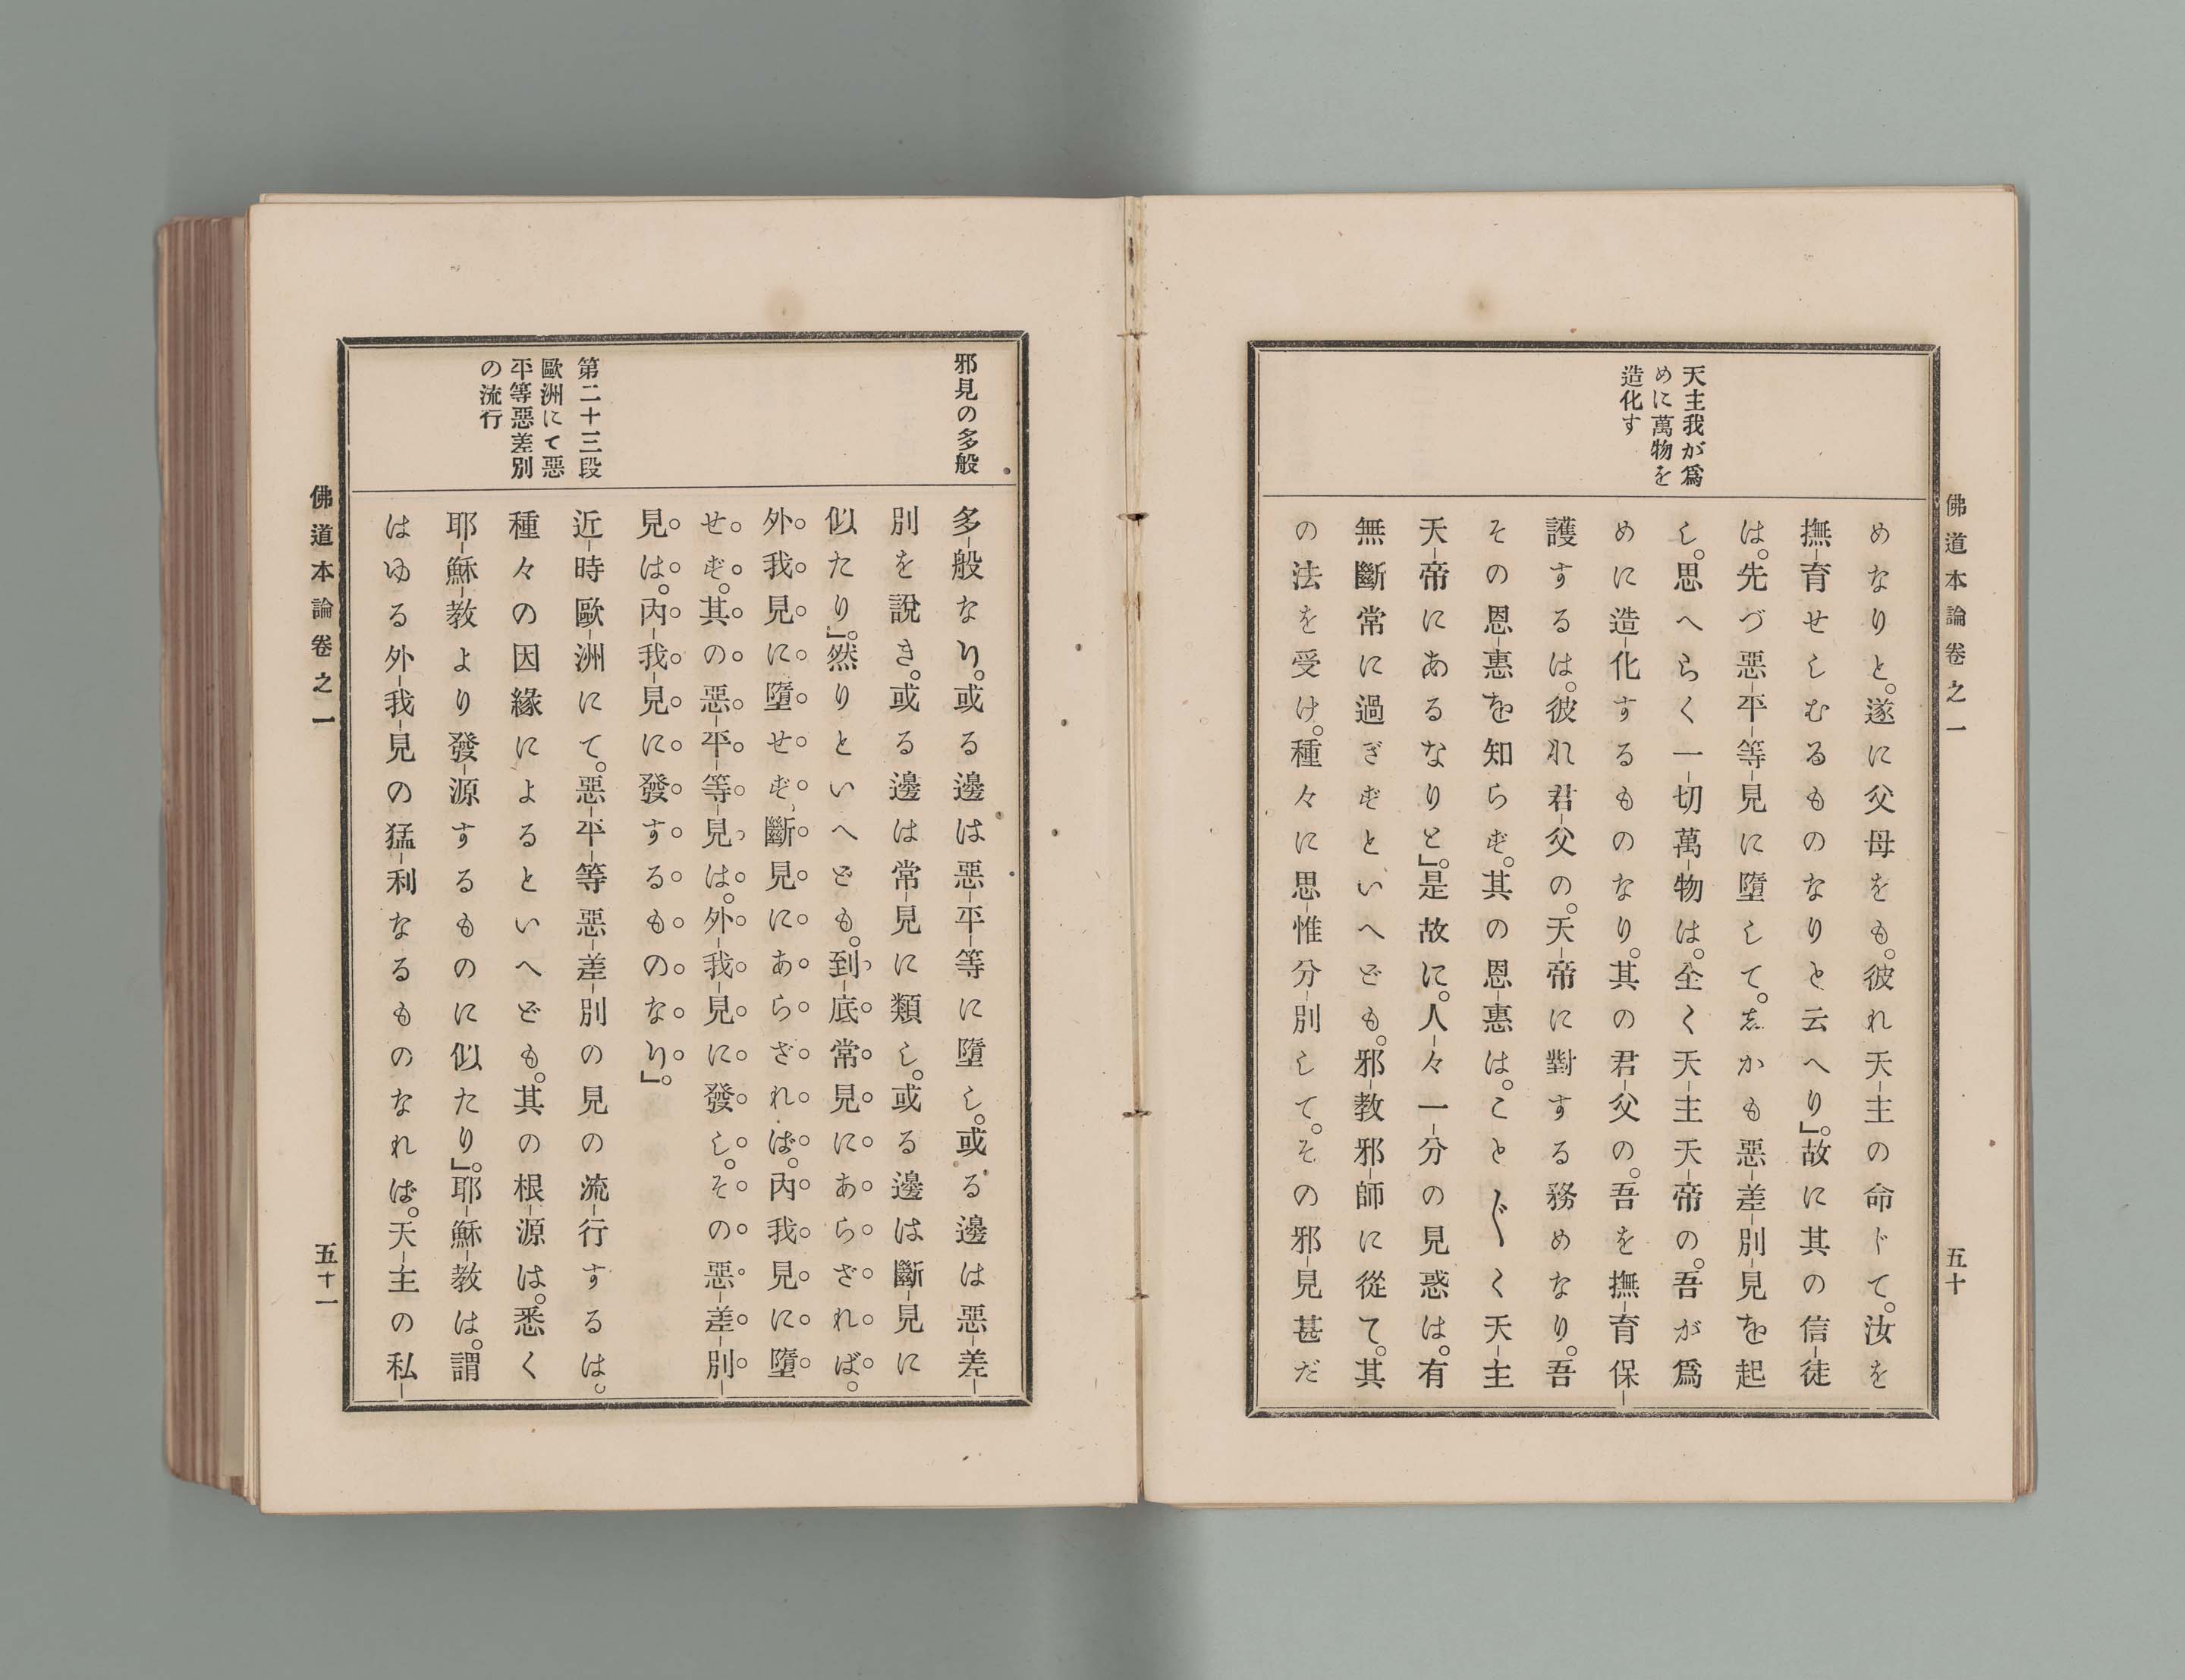 佛道本論卷之一
五十
天主我が爲
めに萬物を
造化す
めなりと。遂に父母をも。彼れ天主の命ドて。汝を
撫育せしむるものなりと云へり』。故に其の信徒
は。先づ惡平等見に墮して。志かも惡差別見を起
し。思へらく一切萬物は。全く天主天帝の。吾が爲
めに造化するものなり。其の君父の。吾を撫育保
護するは。彼れ君父の。天帝に對する務めなり。吾
その恩惠を知らず。其の恩惠は。こと〴〵く天主
天帝にあるなりと』。是故に。人々一分の見惑は。有
無斷常に過ぎずといへども。邪教邪師に從て。其
の法を受け。種々に思惟分別して。その邪見甚だ
邪見の多般
多般なり。或る邊は惡平等に墮し。或る邊は惡差
別を說き。或る邊は常見に類し。或る邊は斷見に
似たり』。然りといへども。到底常見にあらざれば。
外我見に墮せず、斷見にあらざれば。內我見に墮
せず。其の惡平等見は。外我見に發し。その惡差別
見は。內我見に發するものなり』。
第二十三段
歐洲にて惡
平等惡差別
の流行
近時歐洲にて。惡平等惡差別の見の流行するは。
種々の因緣によるといへども。其の根源は。悉く
耶穌教より發源するものに似たり』。耶穌教は。謂
はゆる外我見の猛利なるものなれば。天主の私
佛道本論卷之一
五十一